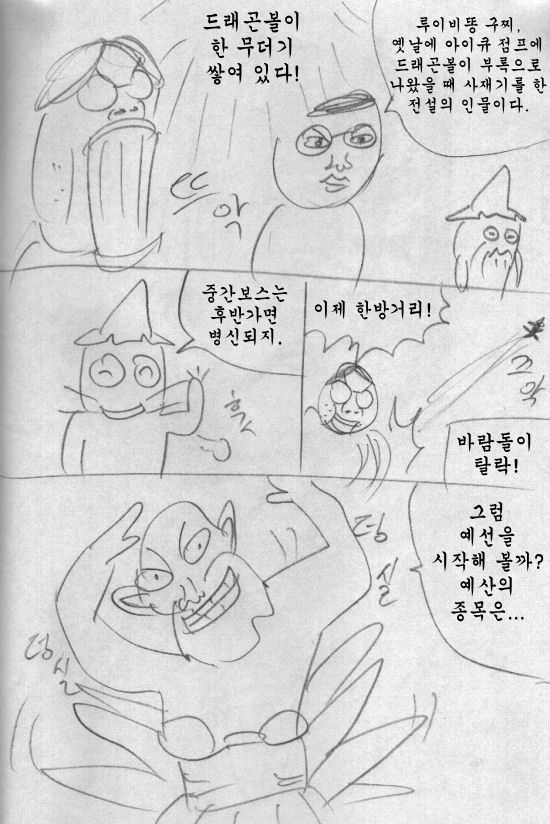 드래곤볼이
한 무더기
쌓여 있다!
류이비똥 구찌,
옛날에 아이큐 점프에
드래곤볼이 부록으로
나왔을 때 사재기를 한
전설의 인물이다.
뜨악
중간보스는
후반가면
병신되지.
이제 한방거리!
바람돌이
탈락!
그럼
예선을
시작해 볼까?
예산의
종목은...
덩실
덩실